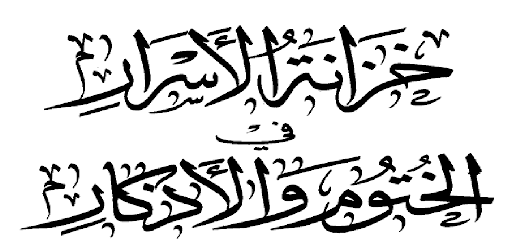 خَزَانَةُ الْأَسْرَارِ
في
الْخُتُومِ وَالْأَذْكَارِ